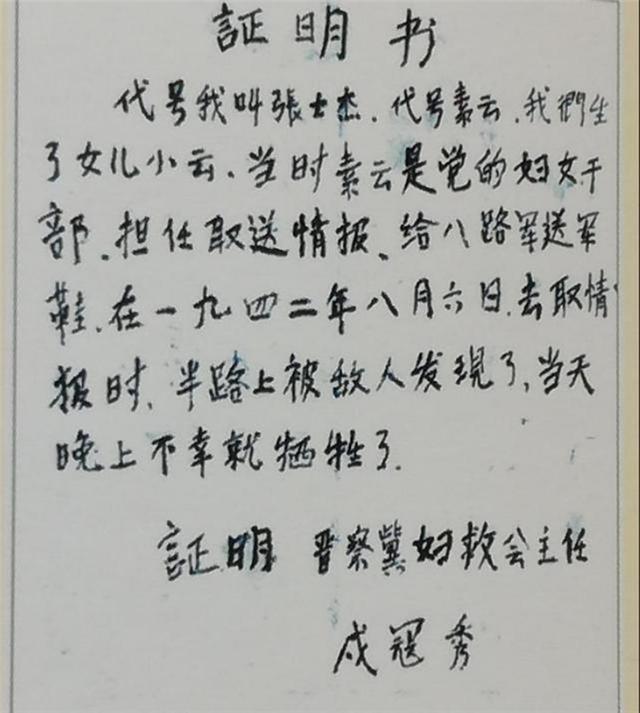 証明书
代号我叫張士杰、代号素云、我們生
了女儿小云、当时素云是党的妇女干
部、担任取送情报、给八路军送军
鞋、在一九四二年八月六日、去取情
报时、半路上被敌人发現了，当天
晚上不幸就牺牲了．
証明 晋察冀妇救会主任
戍冠秀